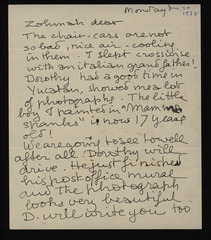 Monday
Zohmah dear
The chair-cars are not
so bad, nice air-cooling
in them. I slept crosswise
with an italian grandfather!
Dorothy had a good time in
Yucatan, showed me a lot
of photographs. The little
boy I painted in "Mamma
spanks" is now 17 years
old!
We are going to see Lowell
after all Dorothy will
drive. He just finished
his post office mural
and the photograph
looks very beautiful.
D. will write you too